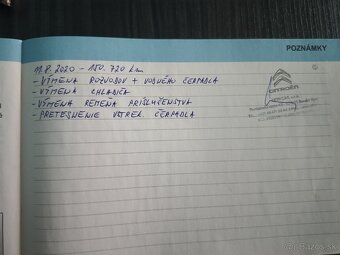 POZNÁMKY
11.8.2020 - 150.720 km
- VÝMENA ROZVODOV + VODNÉHO ČERPADLA
- VÝMENA CHLADIČA
- VÝMENA REMEŇA PRÍSLUŠENSTVA
- PRETESNENIE VSTREK. ČERPADLA
CITROËN
bazos.sk